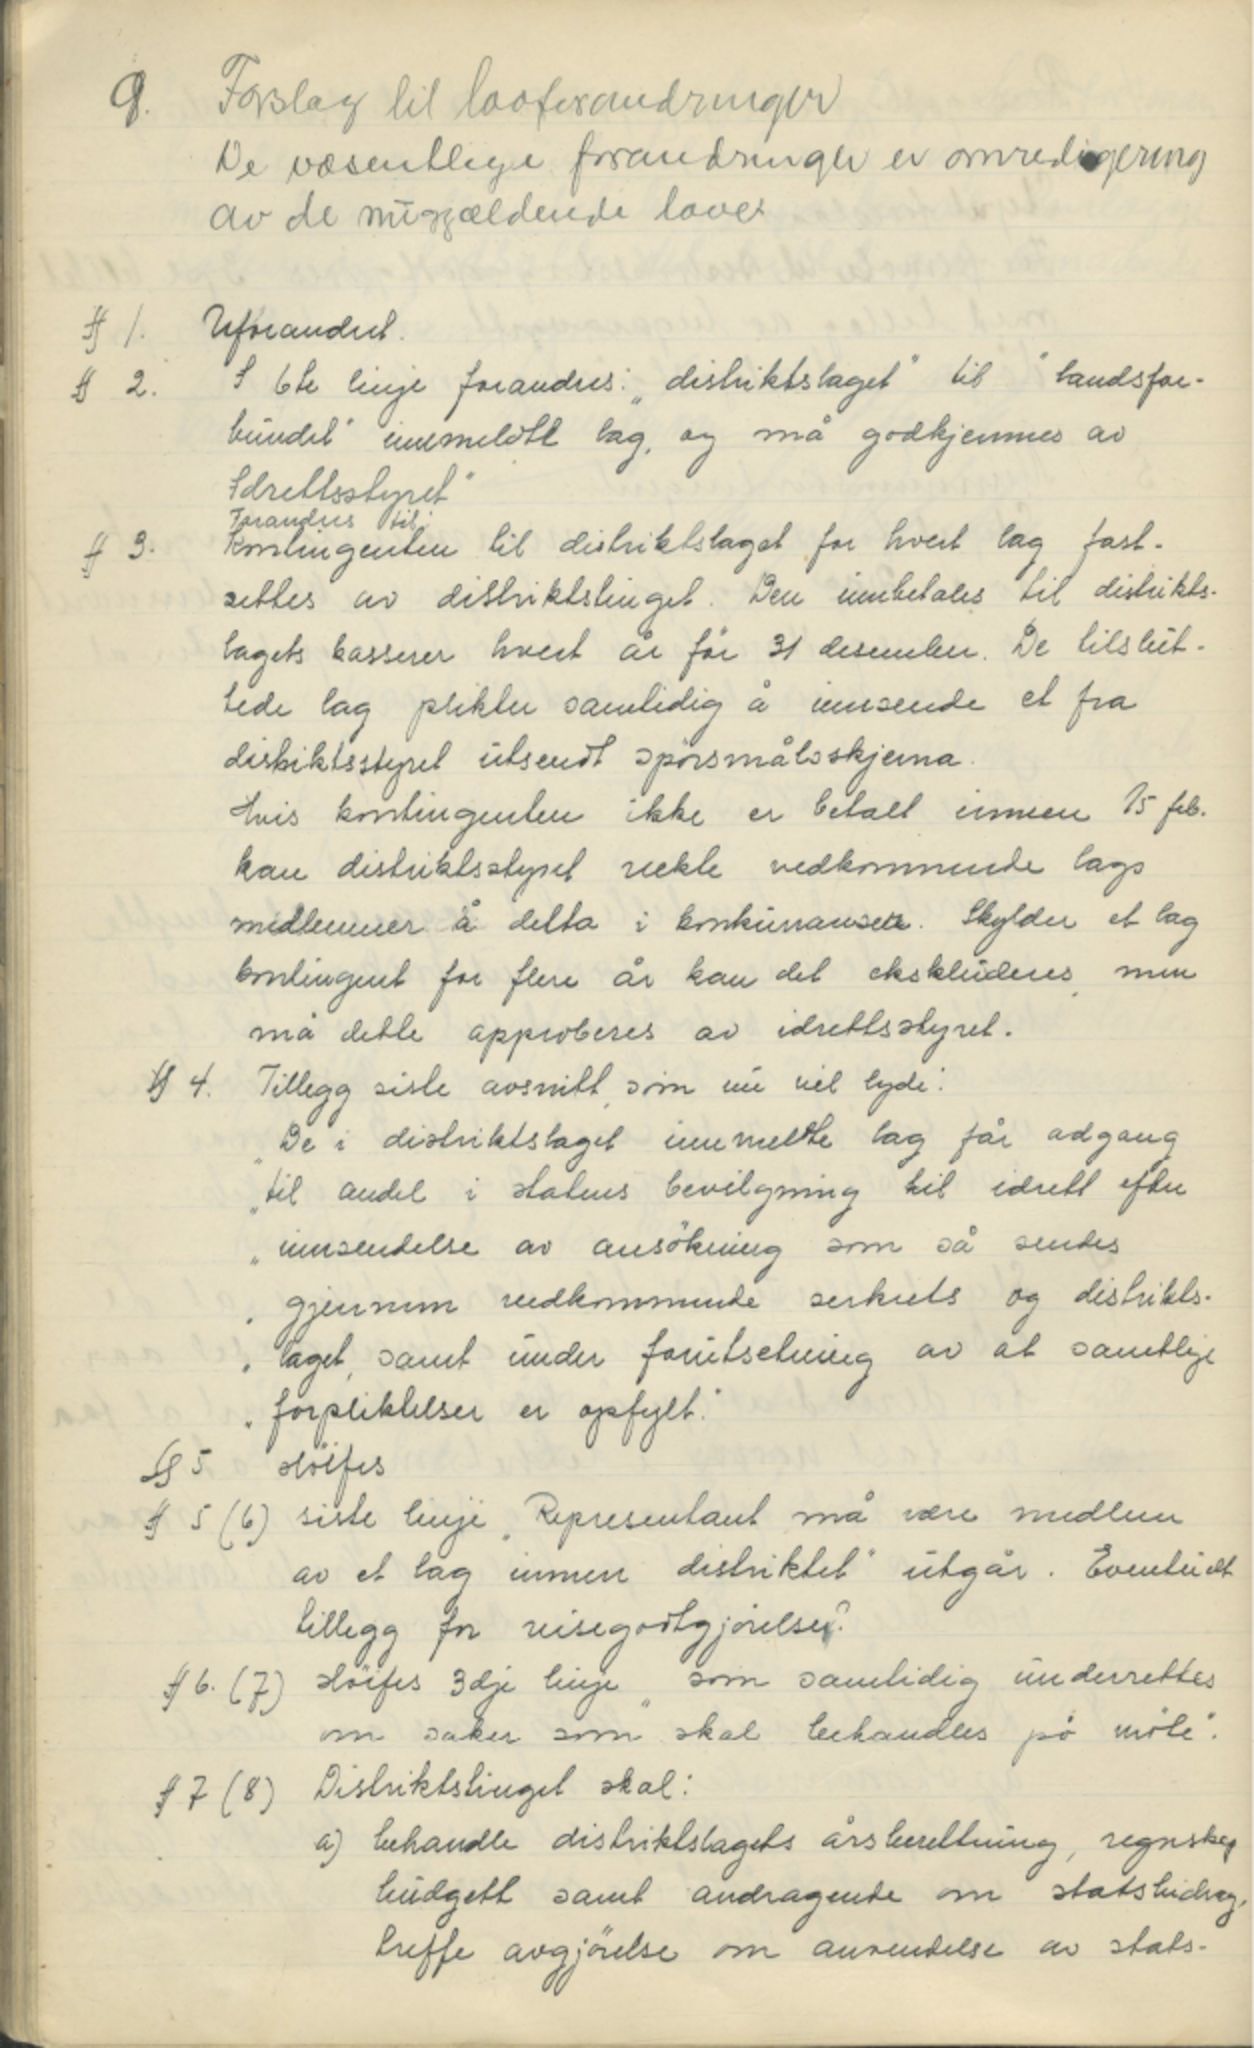 9. Forslag til lovforandringer
De væsentlige forandringer er omredigering
av de nugjældende lover
§ 1. Uforandret.
§ 2. I 6te linje forandres: „distriktslaget" til "landsfor-
bundet" innmeldt lag, og må godkjennes av
Idrettsstyret"
Forandres til:
§ 3. Kontingenten til distriktslaget for hvert lag fast-
settes av distriktstinget. Den innbetales til distrikts-
lagets kasserer hvert år før 31 desember. De tilslut-
tede lag plikter samtidig å innsende et fra
distriktsstyret utsendt spørsmålsskjema.
Hvis kontingenten ikke er betalt innen 15 feb.
kan distriktsstyret nekte vedkommende lags
medlemmer å delta i konkurranser. Skylder et lag
kontingent for flere år kan det ekskluderes, men
må dette approberes av idrettsstyret.
§ 4. Tillegg siste avsnitt, som nu vil lyde:
„De i distriktslaget innmeldte lag får adgang
„til andel i statens bevilgning til idrett efter
„innsendelse av ansökning som så sendes
„gjennem vedkommende serkrets og distrikts-
„laget, samt under forutsetning av at samtlige
„forpliktelser er opfylt."
§ 5 sløifes
§ 5 (6) siste linje „Representant må være medlem
av et lag innen distriktet" utgår. Eventuelt
tillegg for reisegodtgjörelse?
§ 6. (7) sløifes 3dje linje „som samtidig underrettes
om saker som skal behandles på møte".
§ 7 (8) Distriktstinget skal:
a) behandle distriktslagets årsberettning, regnskap
budgett samt andragende om statsbidrag,
treffe avgjörelse om anvendelse av stats-